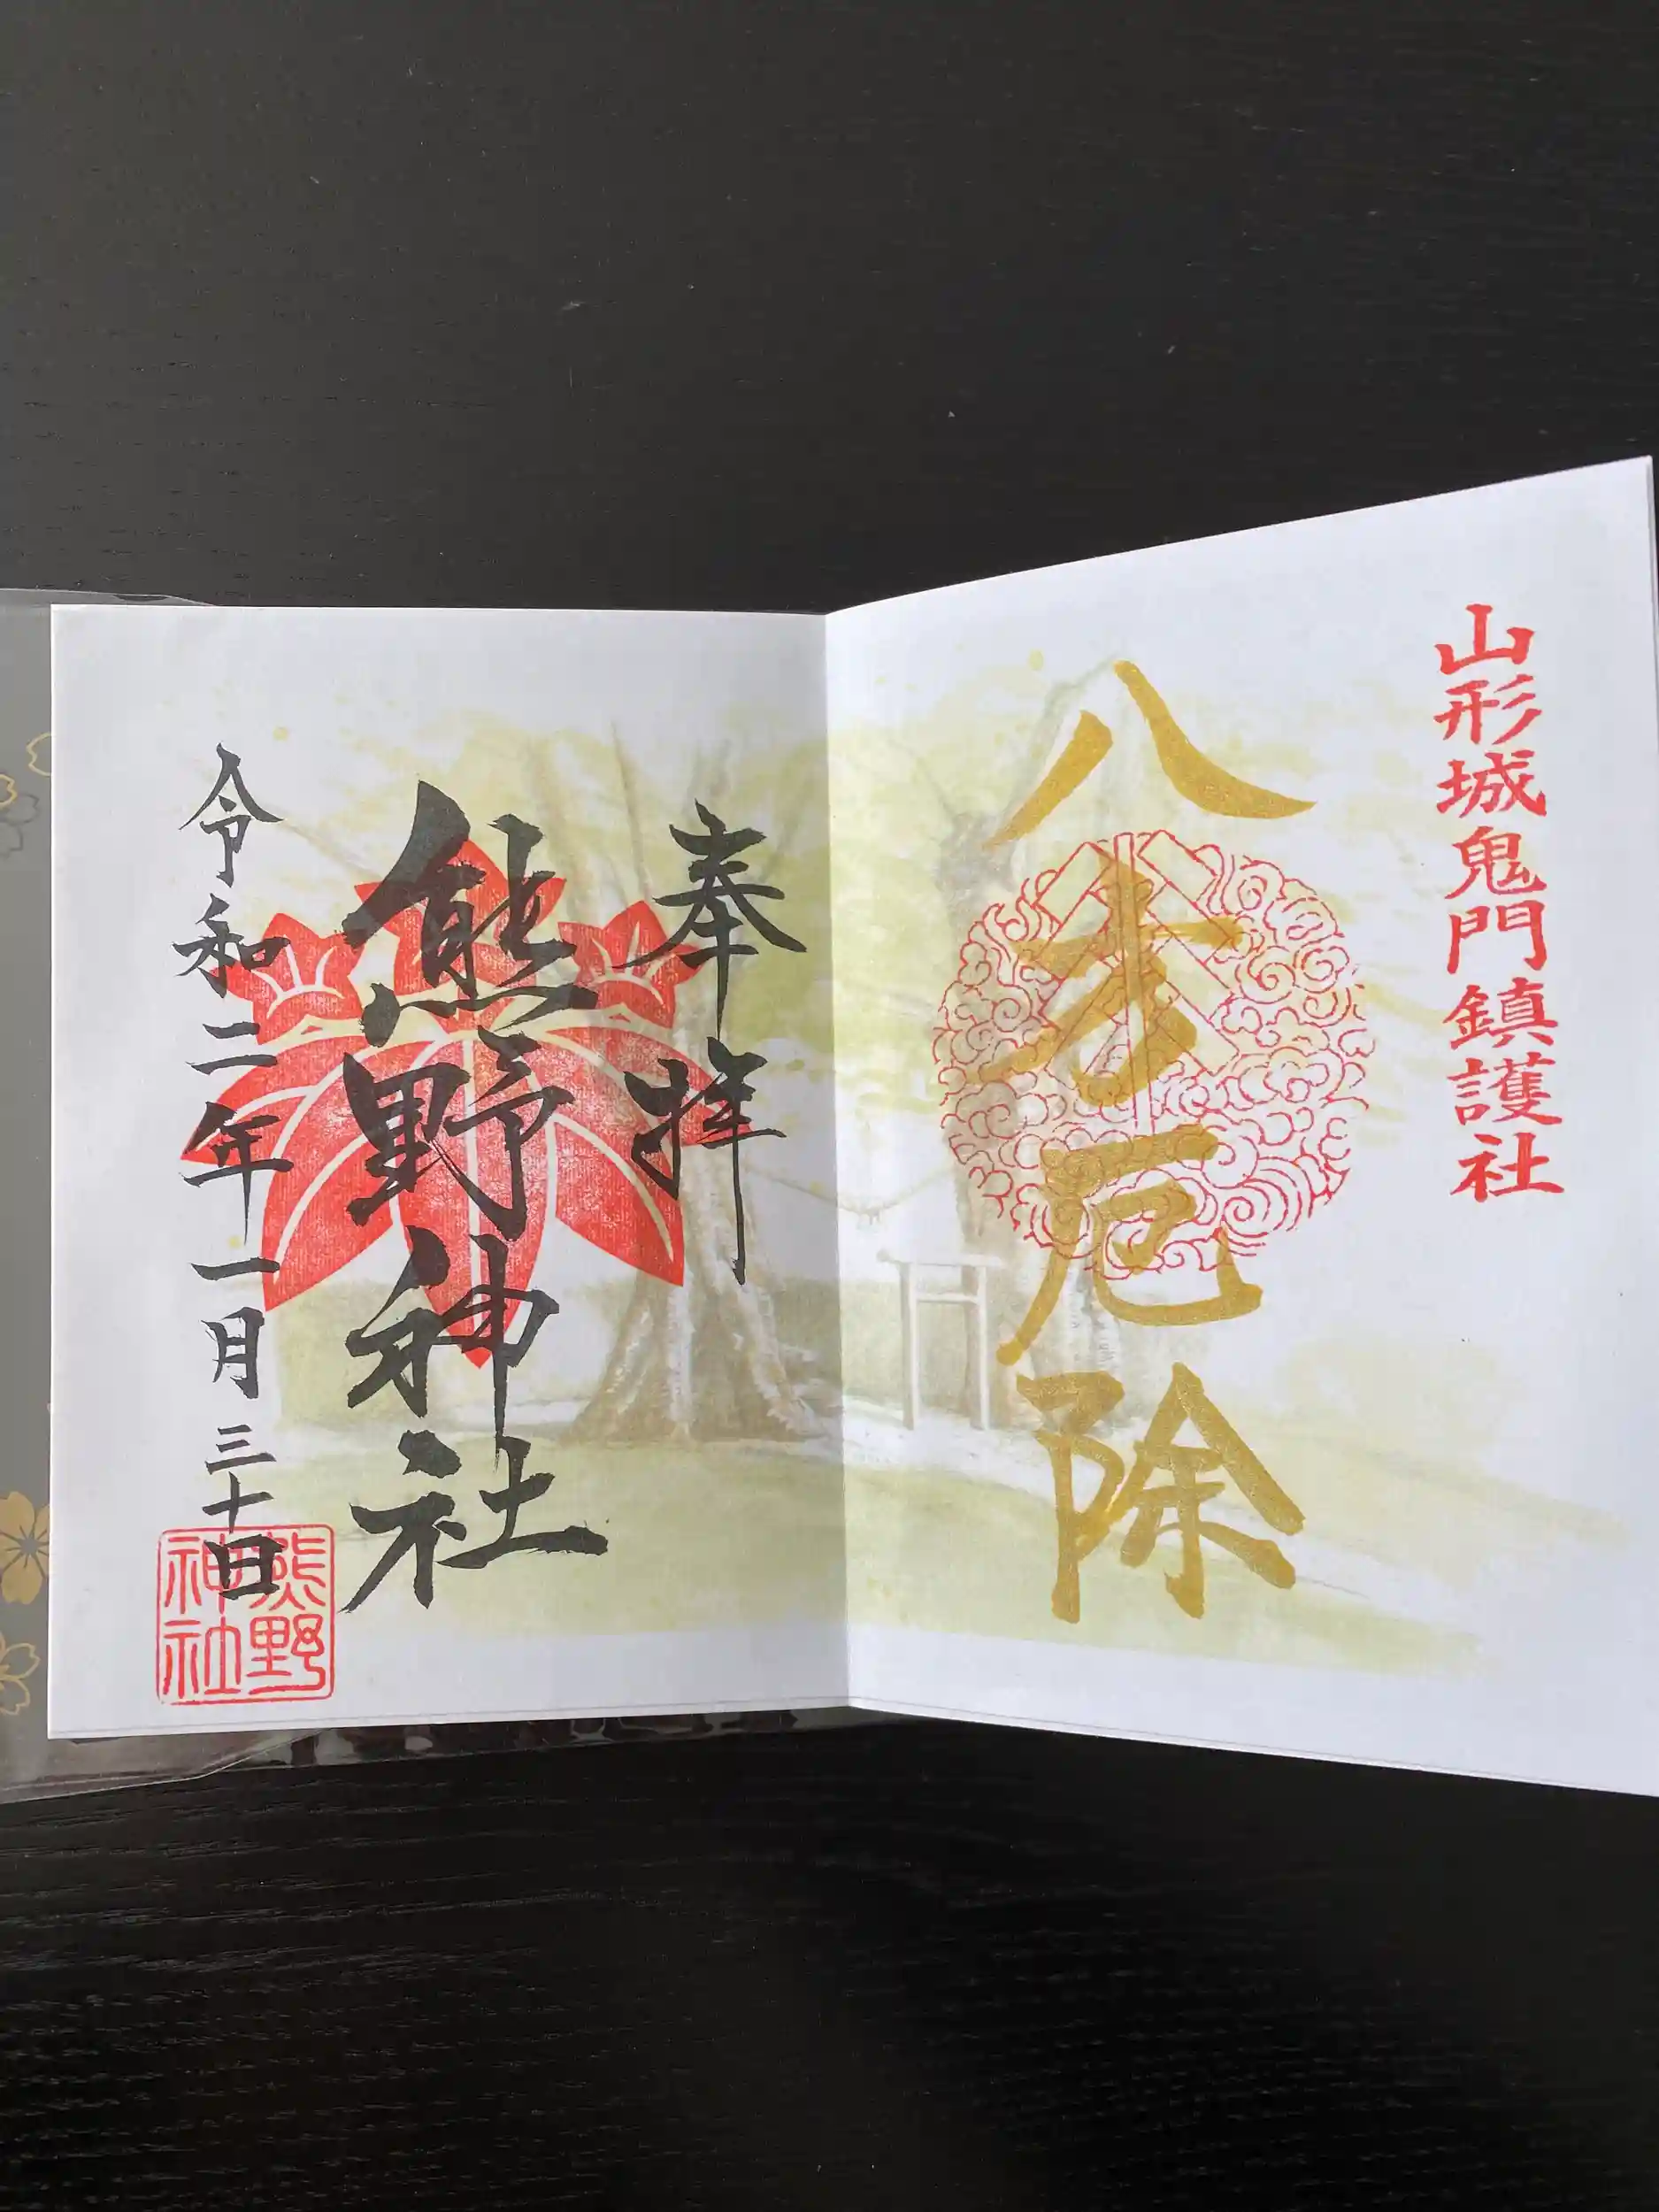 山形城鬼門鎮護社
八方厄除
奉拝
熊野神社
令和二年一月三十日
熊野神社